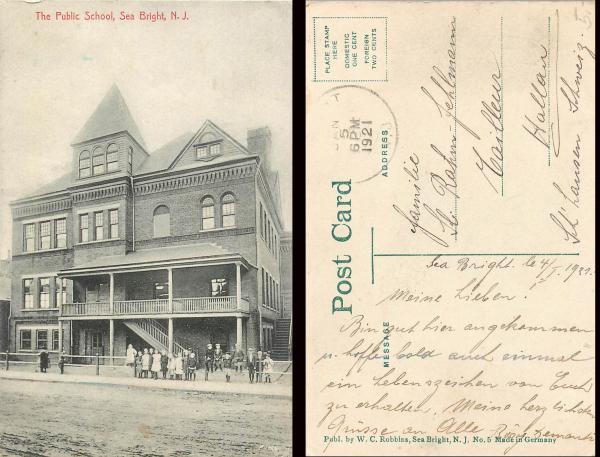 The Public School, Sea Bright, N. J.
PLACE STAMP
HERE
DOMESTIC
ONE CENT
FOREIGN
TWO CENTS
5
6 PM
1921
Post Card
ADDRESS
Familie
Rahm-Fehlmann
Hallau
Schweiz.
MESSAGE
Sea Bright. le 4/I. 1921.
Meine Lieben!
Bin gut hier angekommen
u. hoffe bald auch einmal
ein Lebenszeichen von Euch
zu erhalten. Meine herzlichsten
Grüsse an Alle
Publ. by W. C. Robbins, Sea Bright, N. J. No. 5 Made in Germany